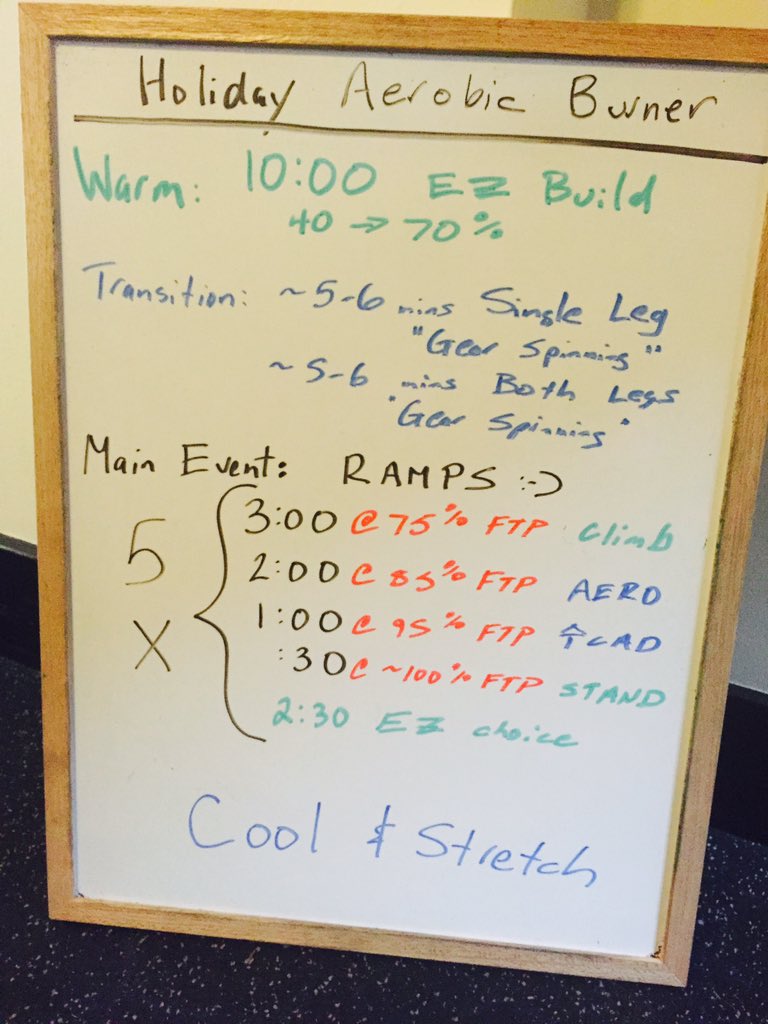 Holiday Aerobic Burner
Warm: 10:00 EZ Build
40 → 70%
Transition: ~5-6 mins Single Leg
"Gear Spinning"
~5-6 mins Both Legs
"Gear Spinning"
Main Event: RAMPS :-)
5 X
3:00 @ 75% FTP climb
2:00 @ 85% FTP AERO
1:00 @ 95% FTP ↑CAD
:30 @ ~100% FTP STAND
2:30 EZ choice
Cool & Stretch